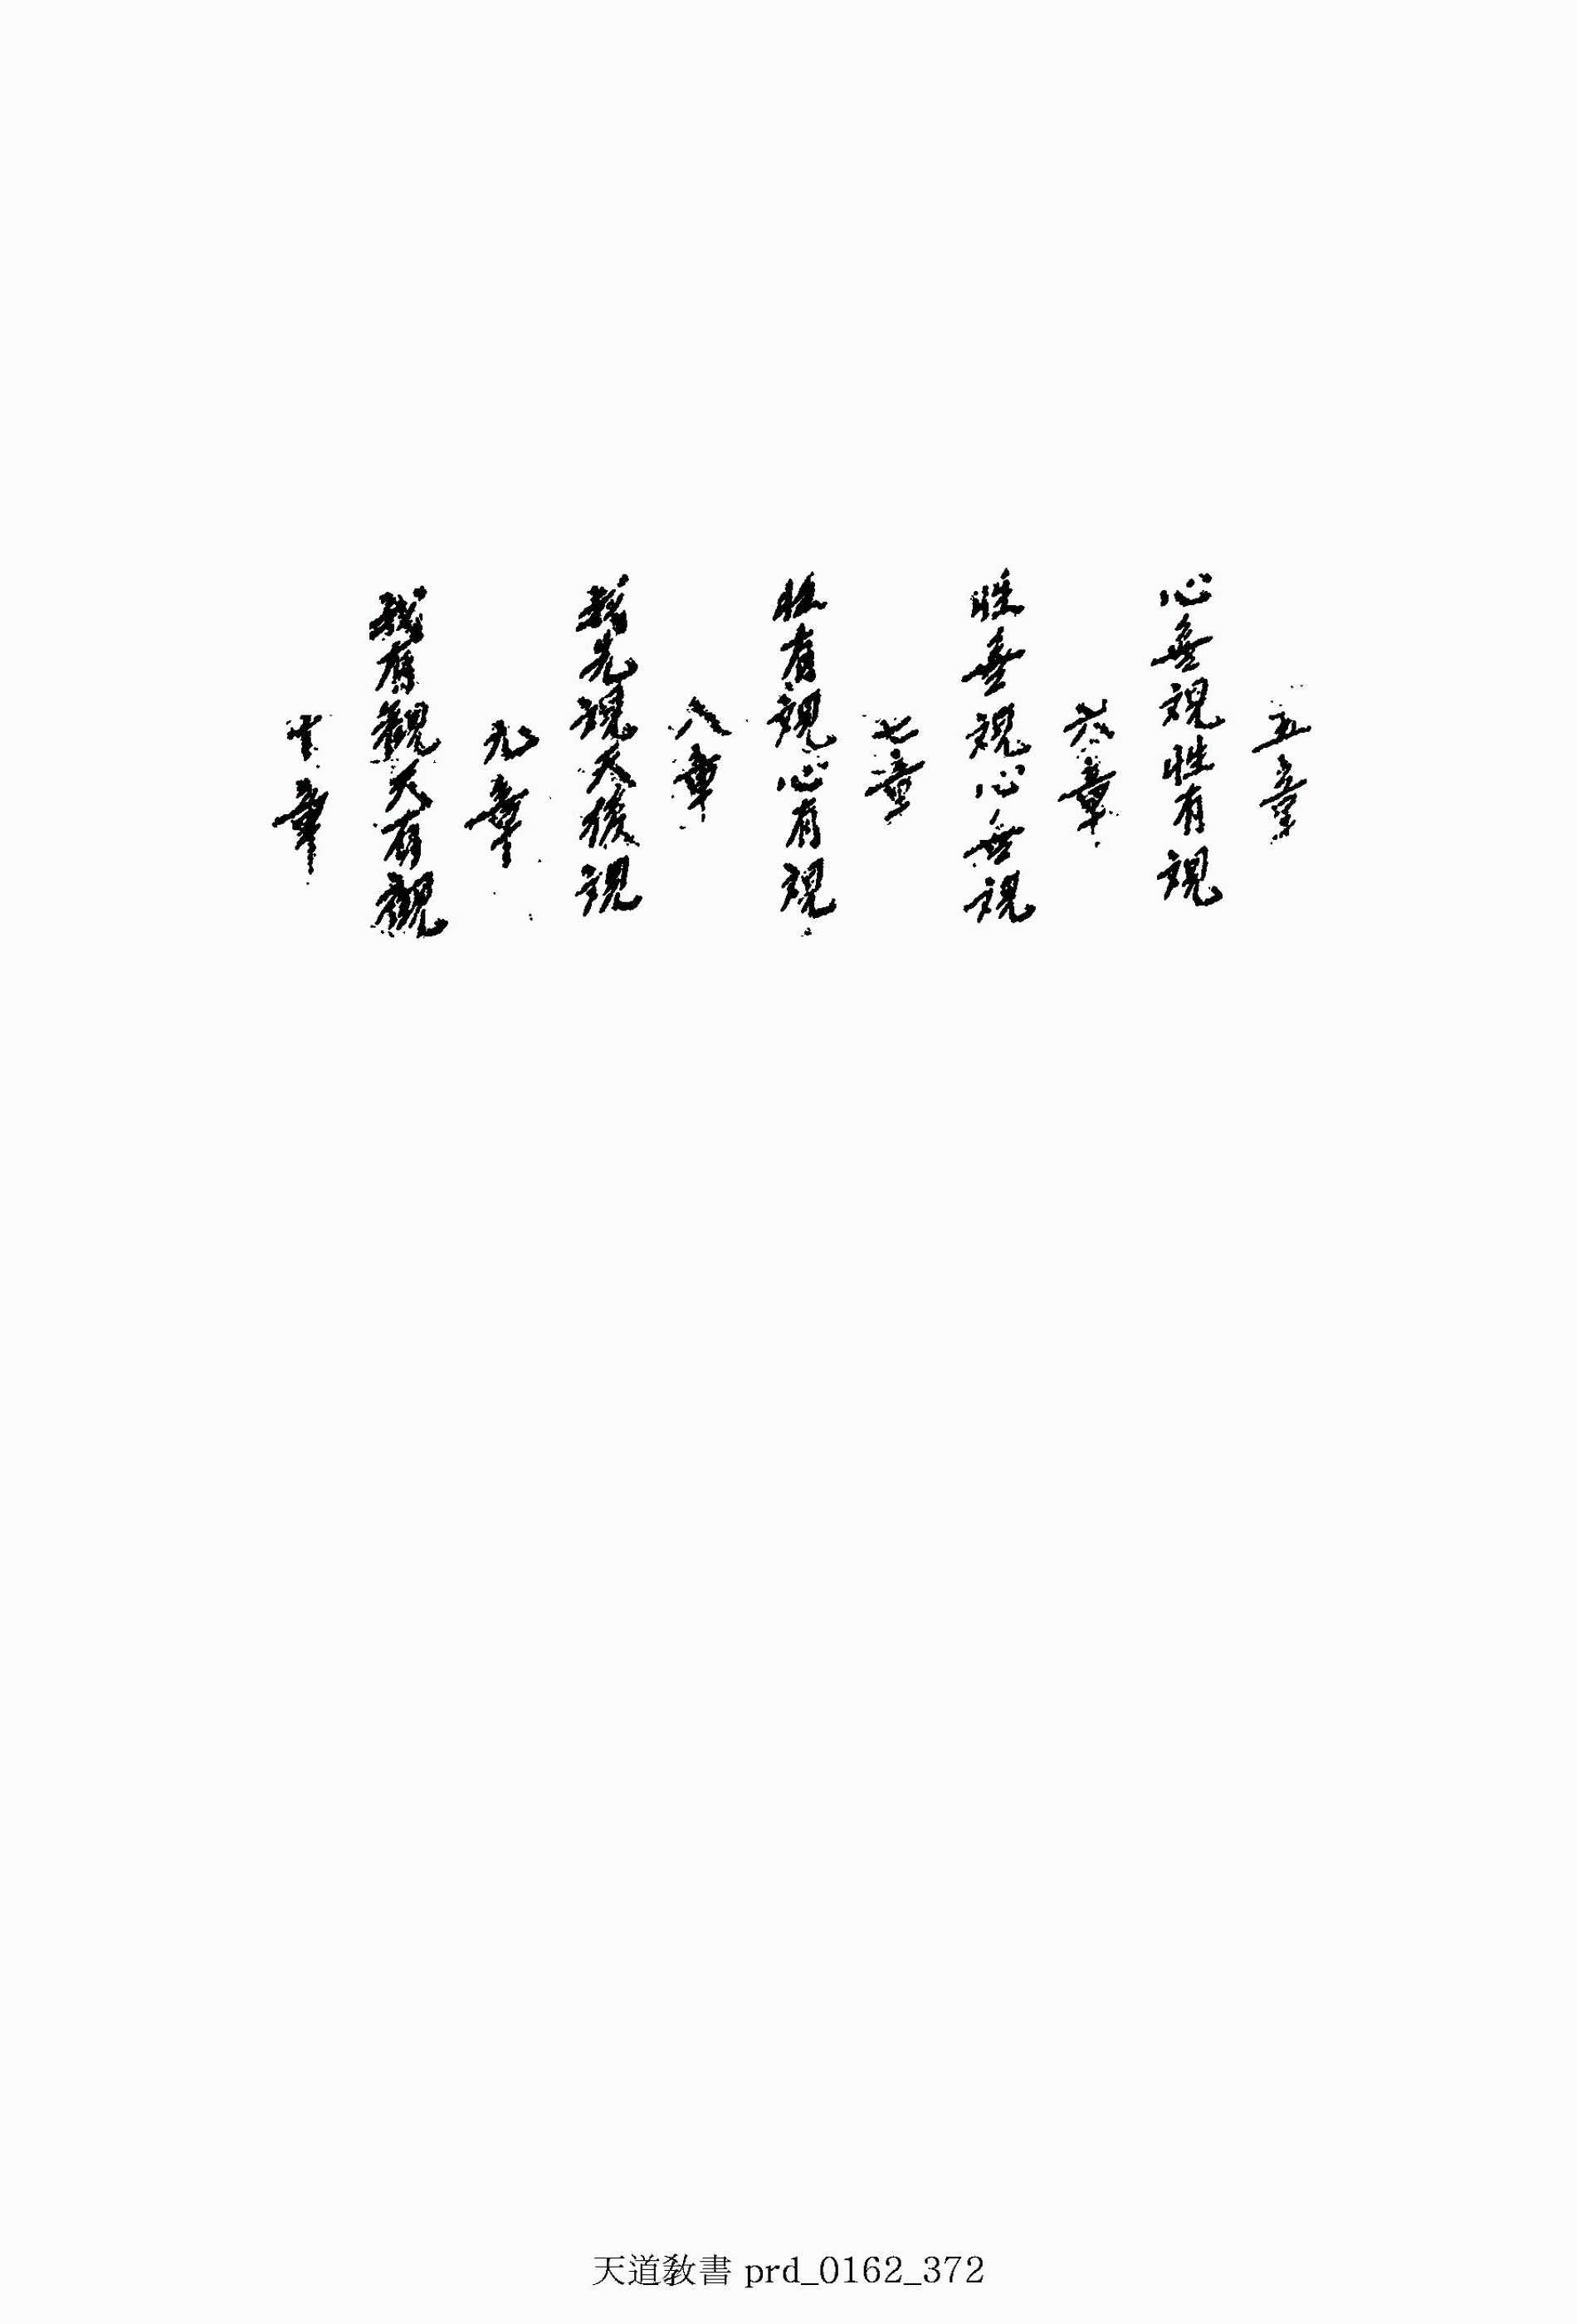 五章
心無視性有視
六章
性無視心無視
七章
性有視心有視
八章
我先視天後視
九章
我有觀天有觀
十章
天道敎書 prd_0162_372